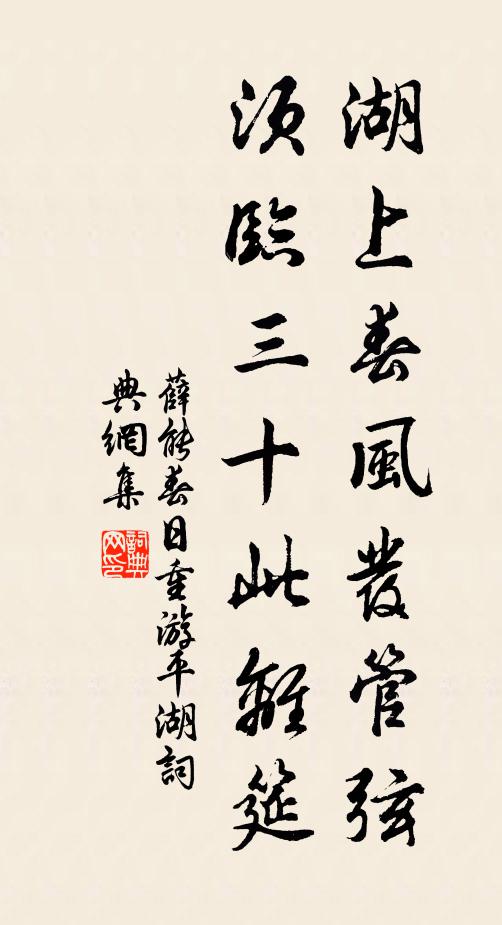 湖上春風發管弦
須臨三十此離筵
薛能春日重游平湖詞
典網集
詞典
网印